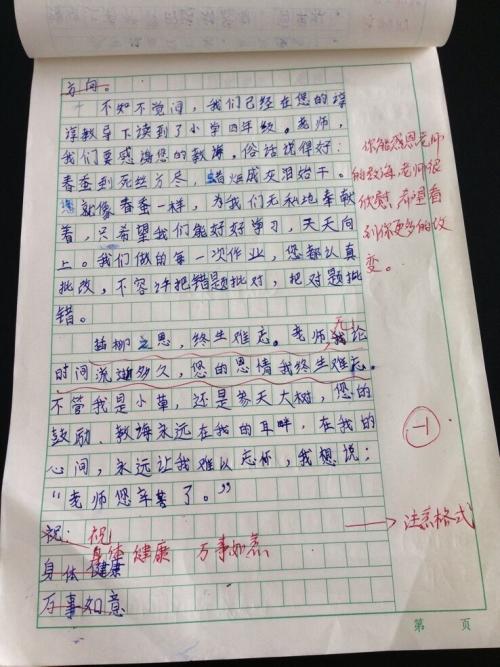 方向。
不知不觉间，我们已经在您的谆
谆教导下读到了小学四年级。老师，
我们要感谢您的教诲。俗话说得好：
春蚕到死丝方尽，蜡烟成灰泪始干。
您就像春蚕一样，为我们无私地奉献
着，只希望我们能好好学习，天天向
上。我们做的每一次作业，您都认真
批改，不容许把错题批对，把对题批
错。
插柳之恩，终生难忘。老师，我论
无
时间流逝多久，您的恩情我终生难忘。
不管我是小草，还是参天大树，您的
鼓励、教诲永远在我的耳畔，在我的
心间，永远让我难以忘怀，我想说：
“老师您辛苦了。”
祝：祝
身体健康 万事如意
身体健康
万事如意
你能感恩老师
的教诲，老师很
欣慰，希望看
到你更多的改
变。
-1
注意格式
第 页